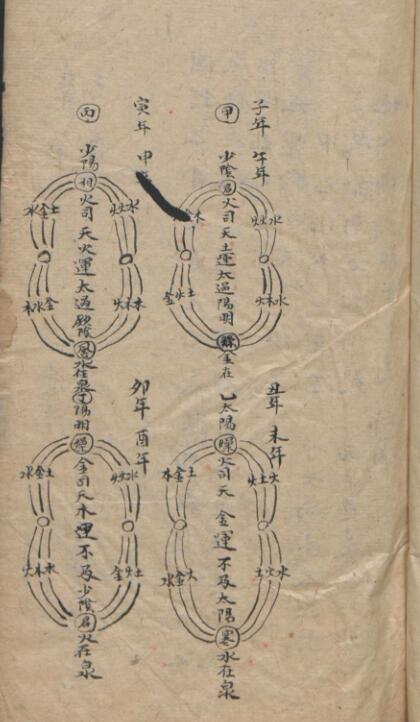 子年 午年
甲 少陰君火司天土運太過陽明燥金在
火火水
木
火木水
金火土
丑年 未年
乙太陽燥火司天金運不及太陽寒水在泉
火土火
木金土
土火水
水金火
寅年 申
丙 少陽相火司天火運太過厥陰風水在泉丁陽明燥金司天木運不及少陰君火在泉
火土水
水金土
火木木
木水金
卯年 酉年
火火水
水金土
金火土
火木水